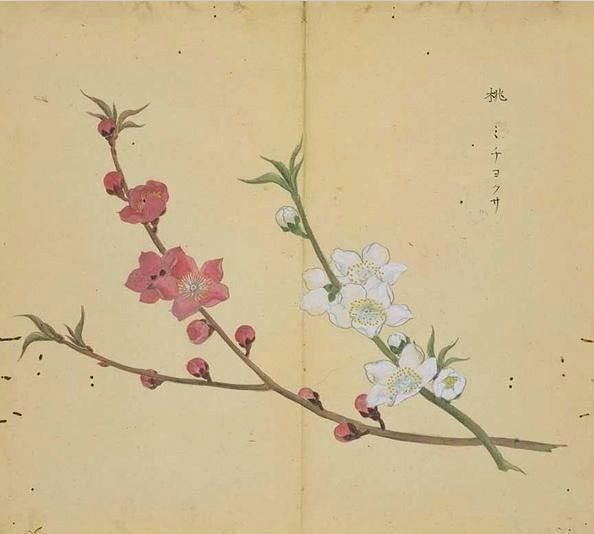 桃 ミチヨクサ